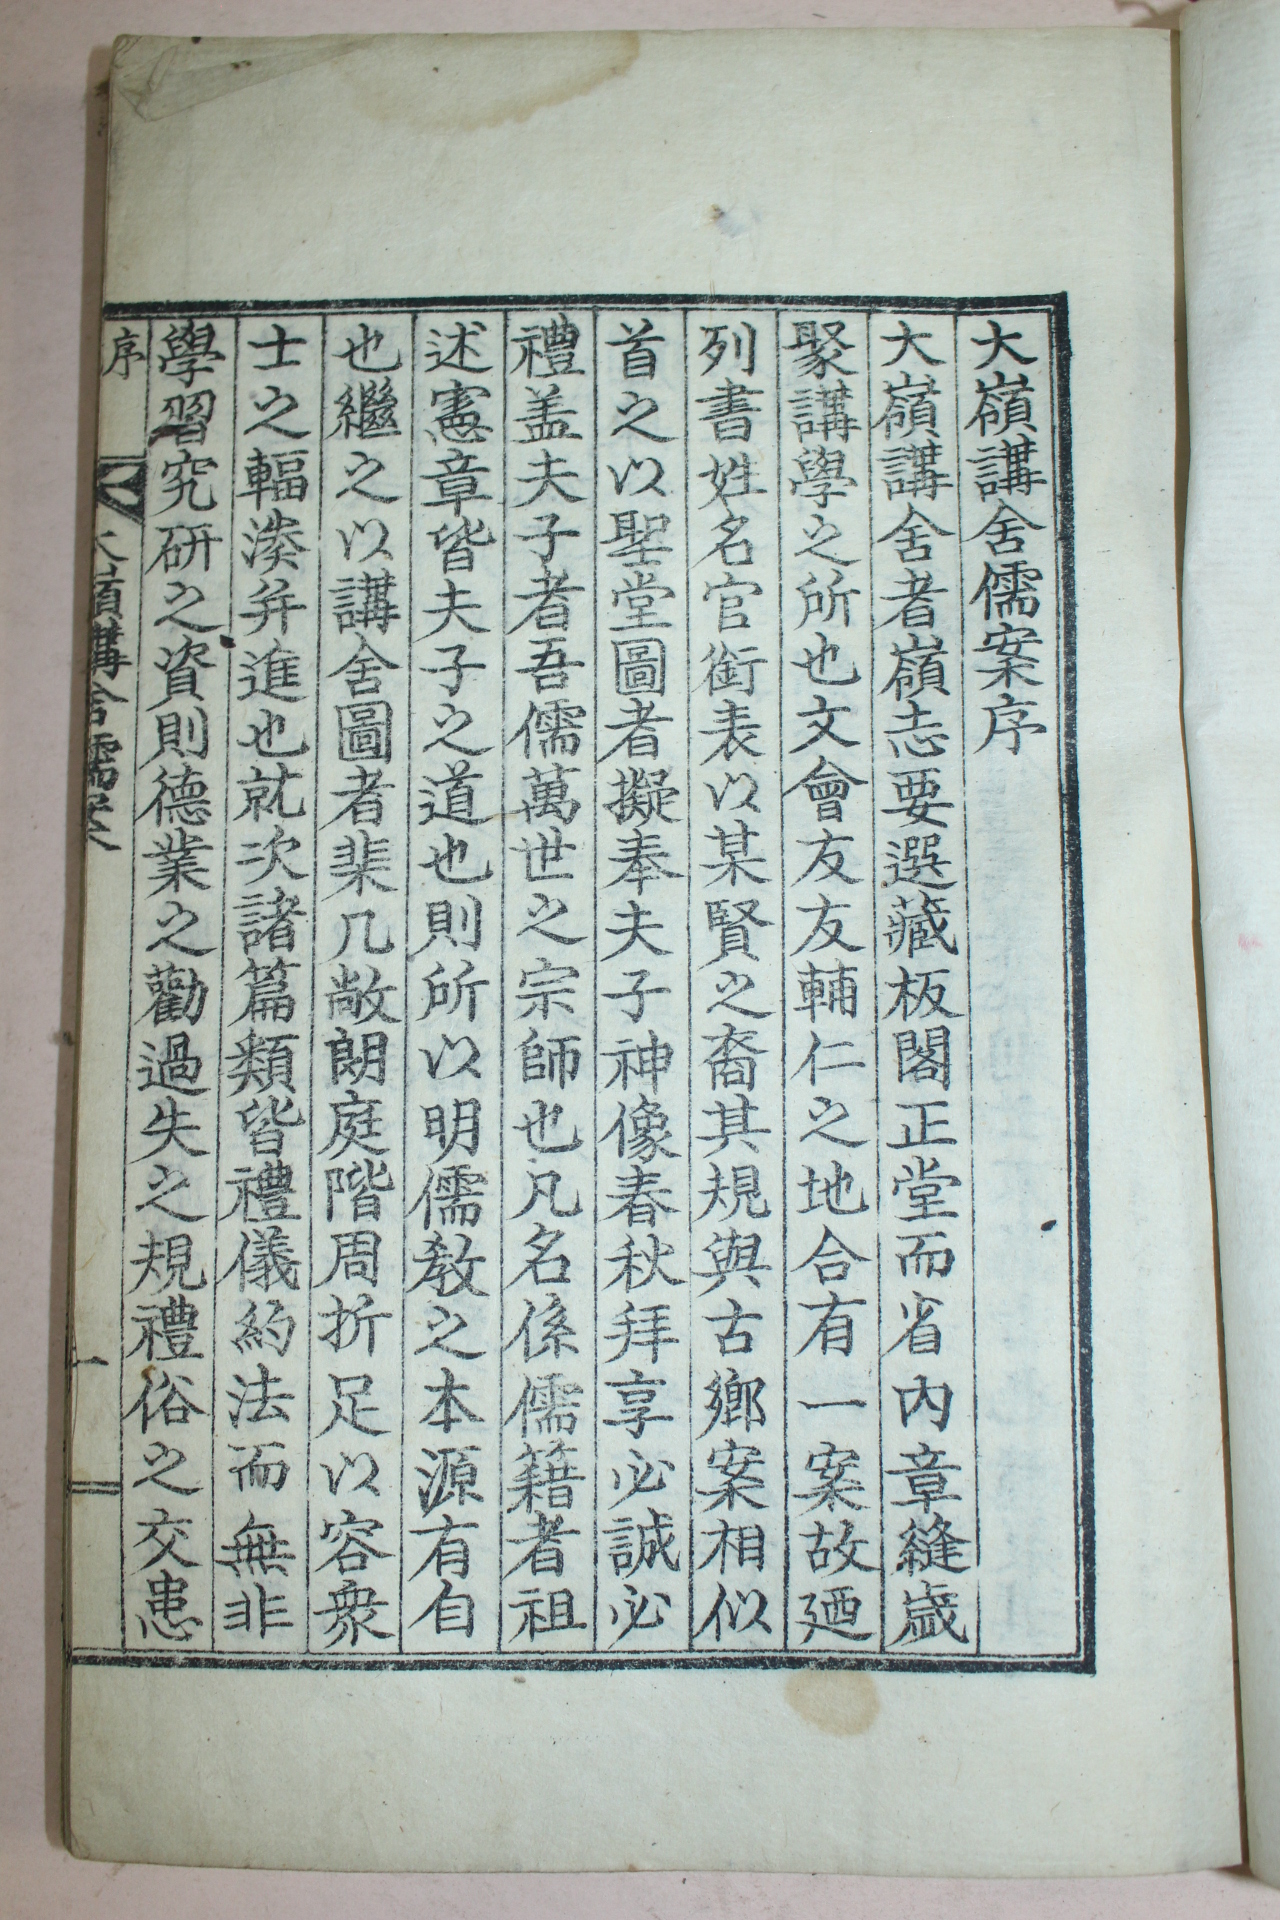 大嶺講舍儒案序
大嶺講舍者嶺志要選藏板閣正堂而省內章縫歲
聚講學之所也文會友友輔仁之地合有一案故廼
列書姓名官銜表以某賢之裔其規與古鄉案相似
首之以聖堂圖者擬奉夫子神像春秋拜享必誠必
禮盖夫子者吾儒萬世之宗師也凡名係儒籍者祖
述憲章皆夫子之道也則所以明儒敎之本源有自
也繼之以講舍圖者棐几敞朗庭階周折足以容衆
士之輻湊并進也就次諸篇類皆禮儀約法而無非
學習究研之資則德業之勸過失之規禮俗之交患
序
大嶺講舍儒案
一